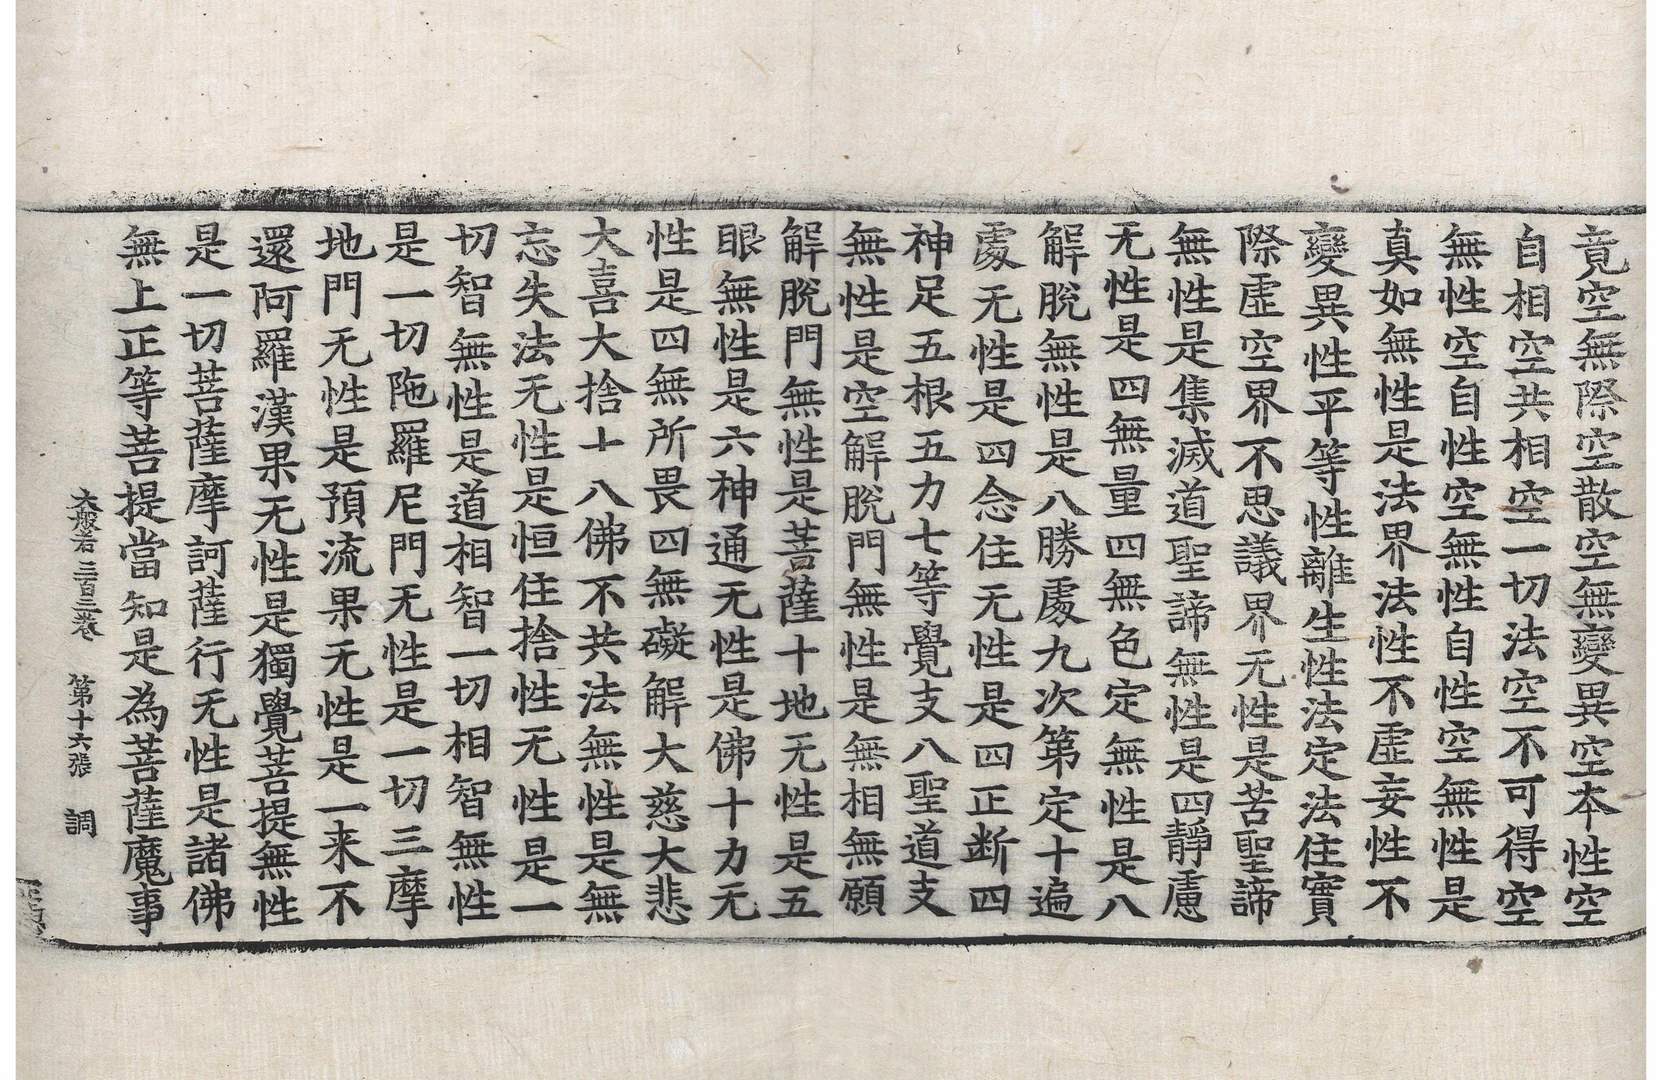 竟空無際空散空無變異空本性空
自相空共相空一切法空不可得空
無性空自性空無性自性空無性是
真如無性是法界法性不虛妄性不
變異性平等性離生性法定法住實
際虛空界不思議界无性是苦聖諦
無性是集滅道聖諦無性是四靜慮
无性是四無量四無色定無性是八
解脫無性是八勝處九次第定十遍
處无性是四念住无性是四正断四
神足五根五力七等覺支八聖道支
無性是空解脫門無性是無相無願
解脫門無性是菩薩十地无性是五
眼無性是六神通无性是佛十力无
性是四無所畏四無礙解大慈大悲
大喜大捨十八佛不共法無性是無
忘失法无性是恒住捨性无性是一
切智無性是道相智一切相智無性
是一切陁羅尼門无性是一切三摩
地門无性是預流果无性是一来不
還阿羅漢果无性是獨覺菩提無性
是一切菩薩摩訶薩行无性是諸佛
無上正等菩提當知是為菩薩魔事
大般若三百三卷 第十六張 調